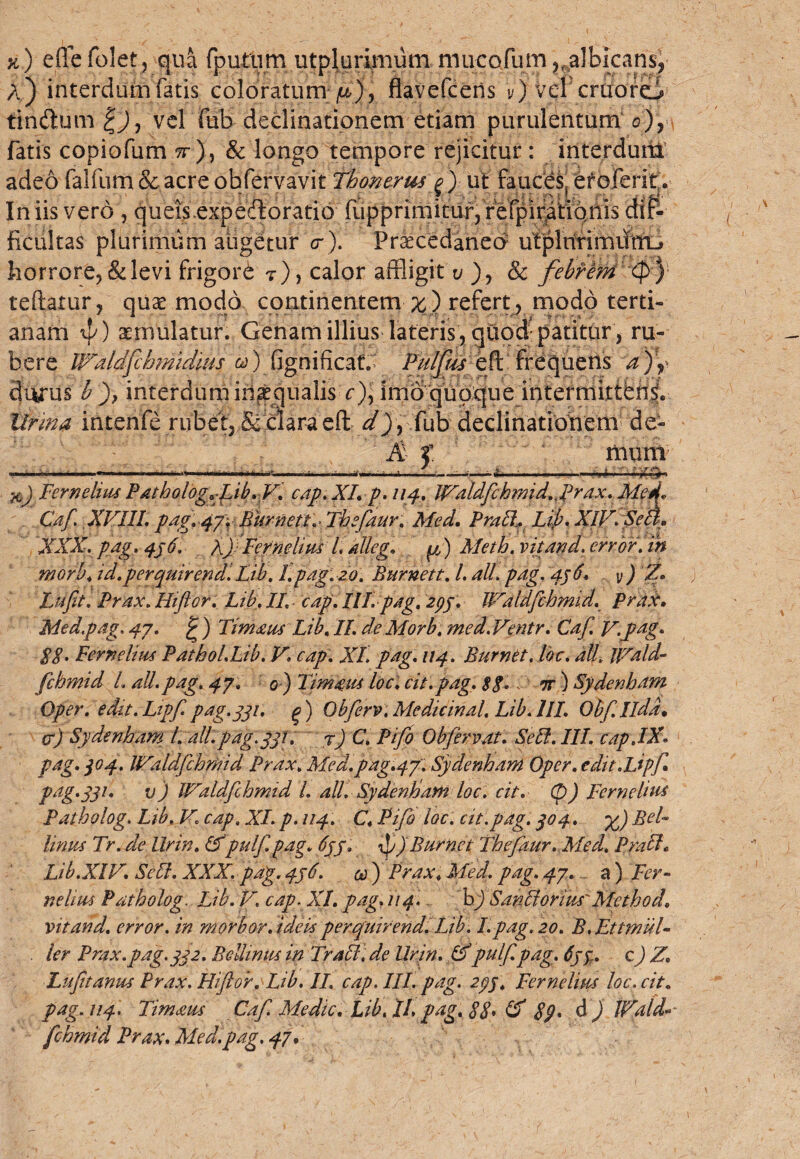 ϰ) esse solet, quà sputum utplurimùm mucosum, albicans,
λ) interdum satis coloratum μ), flavescens ν) vel cruore
tinctum ξ), vel sub declinationem etiam purulentum ο),
satis copiosum π), & longo tempore rejicitur: interdum
adeò salsum & acre observavit Thonerus ϱ) ut fauces eroserit.
In iis verò, queis expectoratio supprimitur, respirationis dif-
ficultas plurimùm augetur σ). Præcedaneo utplurimùm
horrore, & levi frigore τ), calor affligit υ), & febrem φ)
testatur, quæ modò continentem χ) refert, modò terti-
anam ψ) æmulatur. Genam illius lateris, quod patitur, ru-
bere Waldschmidius ω) significat. Pulsus est frequens a),
durus b), interdum inæqualis c), imò quoque intermittens.
Urina intensè rubet, & clara est d), sub declinationem de-
A 3 mum
ϰ) Fernelius Patholog. Lib. V. cap. XI. p. 114. Waldschmid. Prax. Med.
Cas. XVIII. pag. 47. Burnett. Thesaur. Med. Pract. Lib. XIV. Sect.
XXX. pag. 456. λ) Fernelius l. alleg. μ) Meth. vitand. error. in
morb. id. perquirend. Lib. I. pag. 20. Burnett. l. all. pag. 456. ν) Z.
Lusit. Prax. Histor. Lib. II. cap. III. pag. 295. Waldschmid. Prax.
Med. pag. 47. ξ) Timæus Lib. II. de Morb. med. Ventr. Cas. V. pag.
88. Fernelius Pathol. Lib. V. cap. XI. pag. 114. Burnet. loc. all. Wald-
schmid l. all. pag. 47. ο) Timæus loc. cit. pag. 88. π) Sydenham
Oper. edit. Lips. pag. 331. ϱ) Observ. Medicinal. Lib. III. Obs. IIda.
σ) Sydenham l. all. pag. 331. τ) C. Piso Observat. Sect. III. cap. IX.
pag. 304. Waldschmid Prax. Med. pag. 47. Sydenham Oper. edit. Lips.
pag. 331. υ) Waldschmid l. all. Sydenham loc. cit. φ) Fernelius
Patholog. Lib. V. cap. XI. p. 114. C. Piso loc. cit. pag. 304. χ) Bel-
linus Tr. de Urin. & puls. pag. 655. ψ) Burnet Thesaur. Med. Pract.
Lib. XIV. Sect. XXX. pag. 456. ω) Prax. Med. pag. 47. a) Fer-
nelius Patholog. Lib. V. cap. XI. pag. 114. b) Sanctorius Method.
vitand. error. in morbor. ideis perquirend. Lib. I. pag. 20. B. Ettmül-
ler Prax. pag. 332. Bellinus in Tract. de Urin. & puls. pag. 655. c) Z.
Lusitanus Prax. Histor. Lib. II. cap. III. pag. 295. Fernelius loc. cit.
pag. 114. Timæus Cas. Medic. Lib. II. pag. 88. & 89. d) Wald-
schmid Prax. Med. pag. 47.